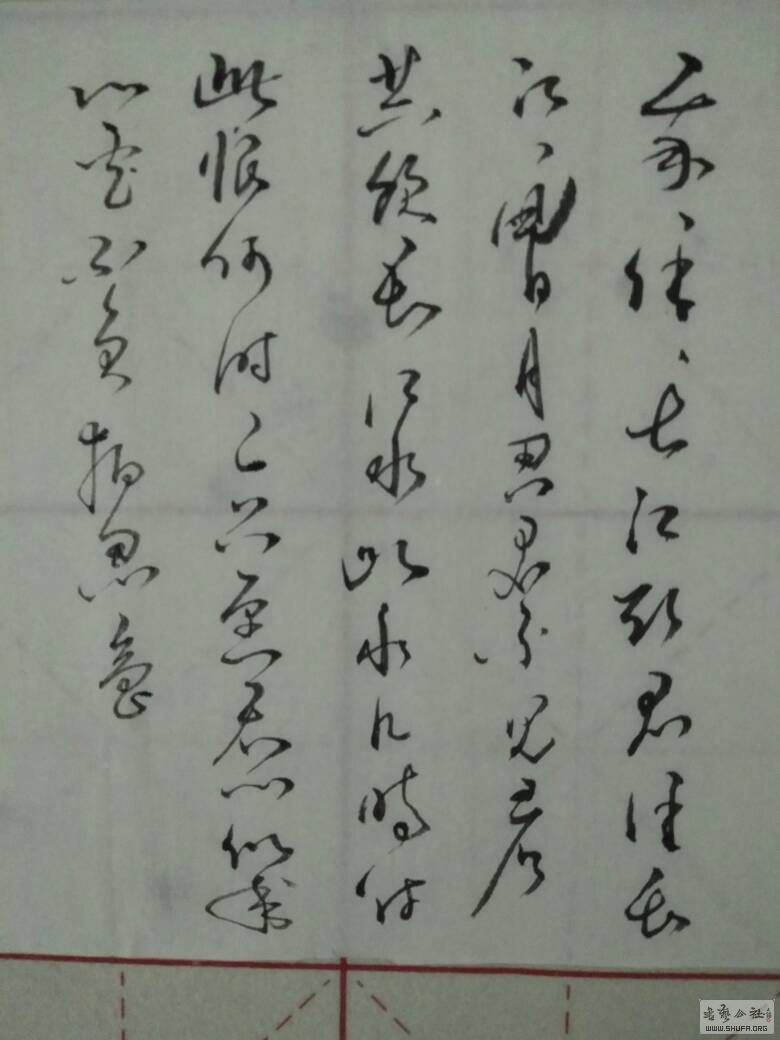 我住长江头君住长
江日月思君不见君
共饮长江水此水几時休
此恨何时已只愿君心似我
心定不负相思意
书艺公社
WWW.SHUFA.ORG